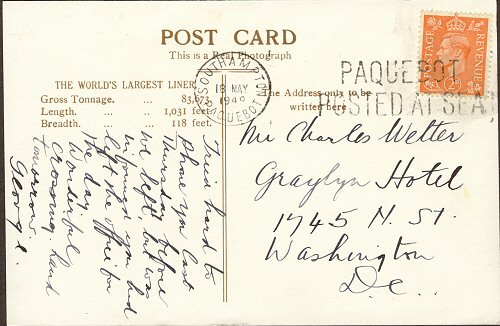 POST CARD
This is a Real Photograph
THE WORLD'S LARGEST LINER
Gross Tonnage. ... 83,673
Length. ... ... 1,031 feet.
Breadth. ... ... 118 feet.
The Address only to be
written here
SOUTHAMPTON
18 MAY
194
PAQUEBOT
PAQUEBOT
POSTED AT SEA
POSTAGE REVENUE
2D
Tried hard to
phone you last
Thursday before
we left but was
informed you had
left the office for
the day.
Wonderful
crossing. Land
tomorrow
George.
Mr Charles Welter
Graylyn Hotel
1745 N. St.
Washington
D.C..